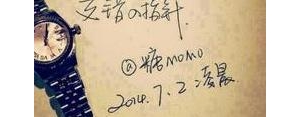 交错の指针
@糖momo
2014.7.2 凌晨